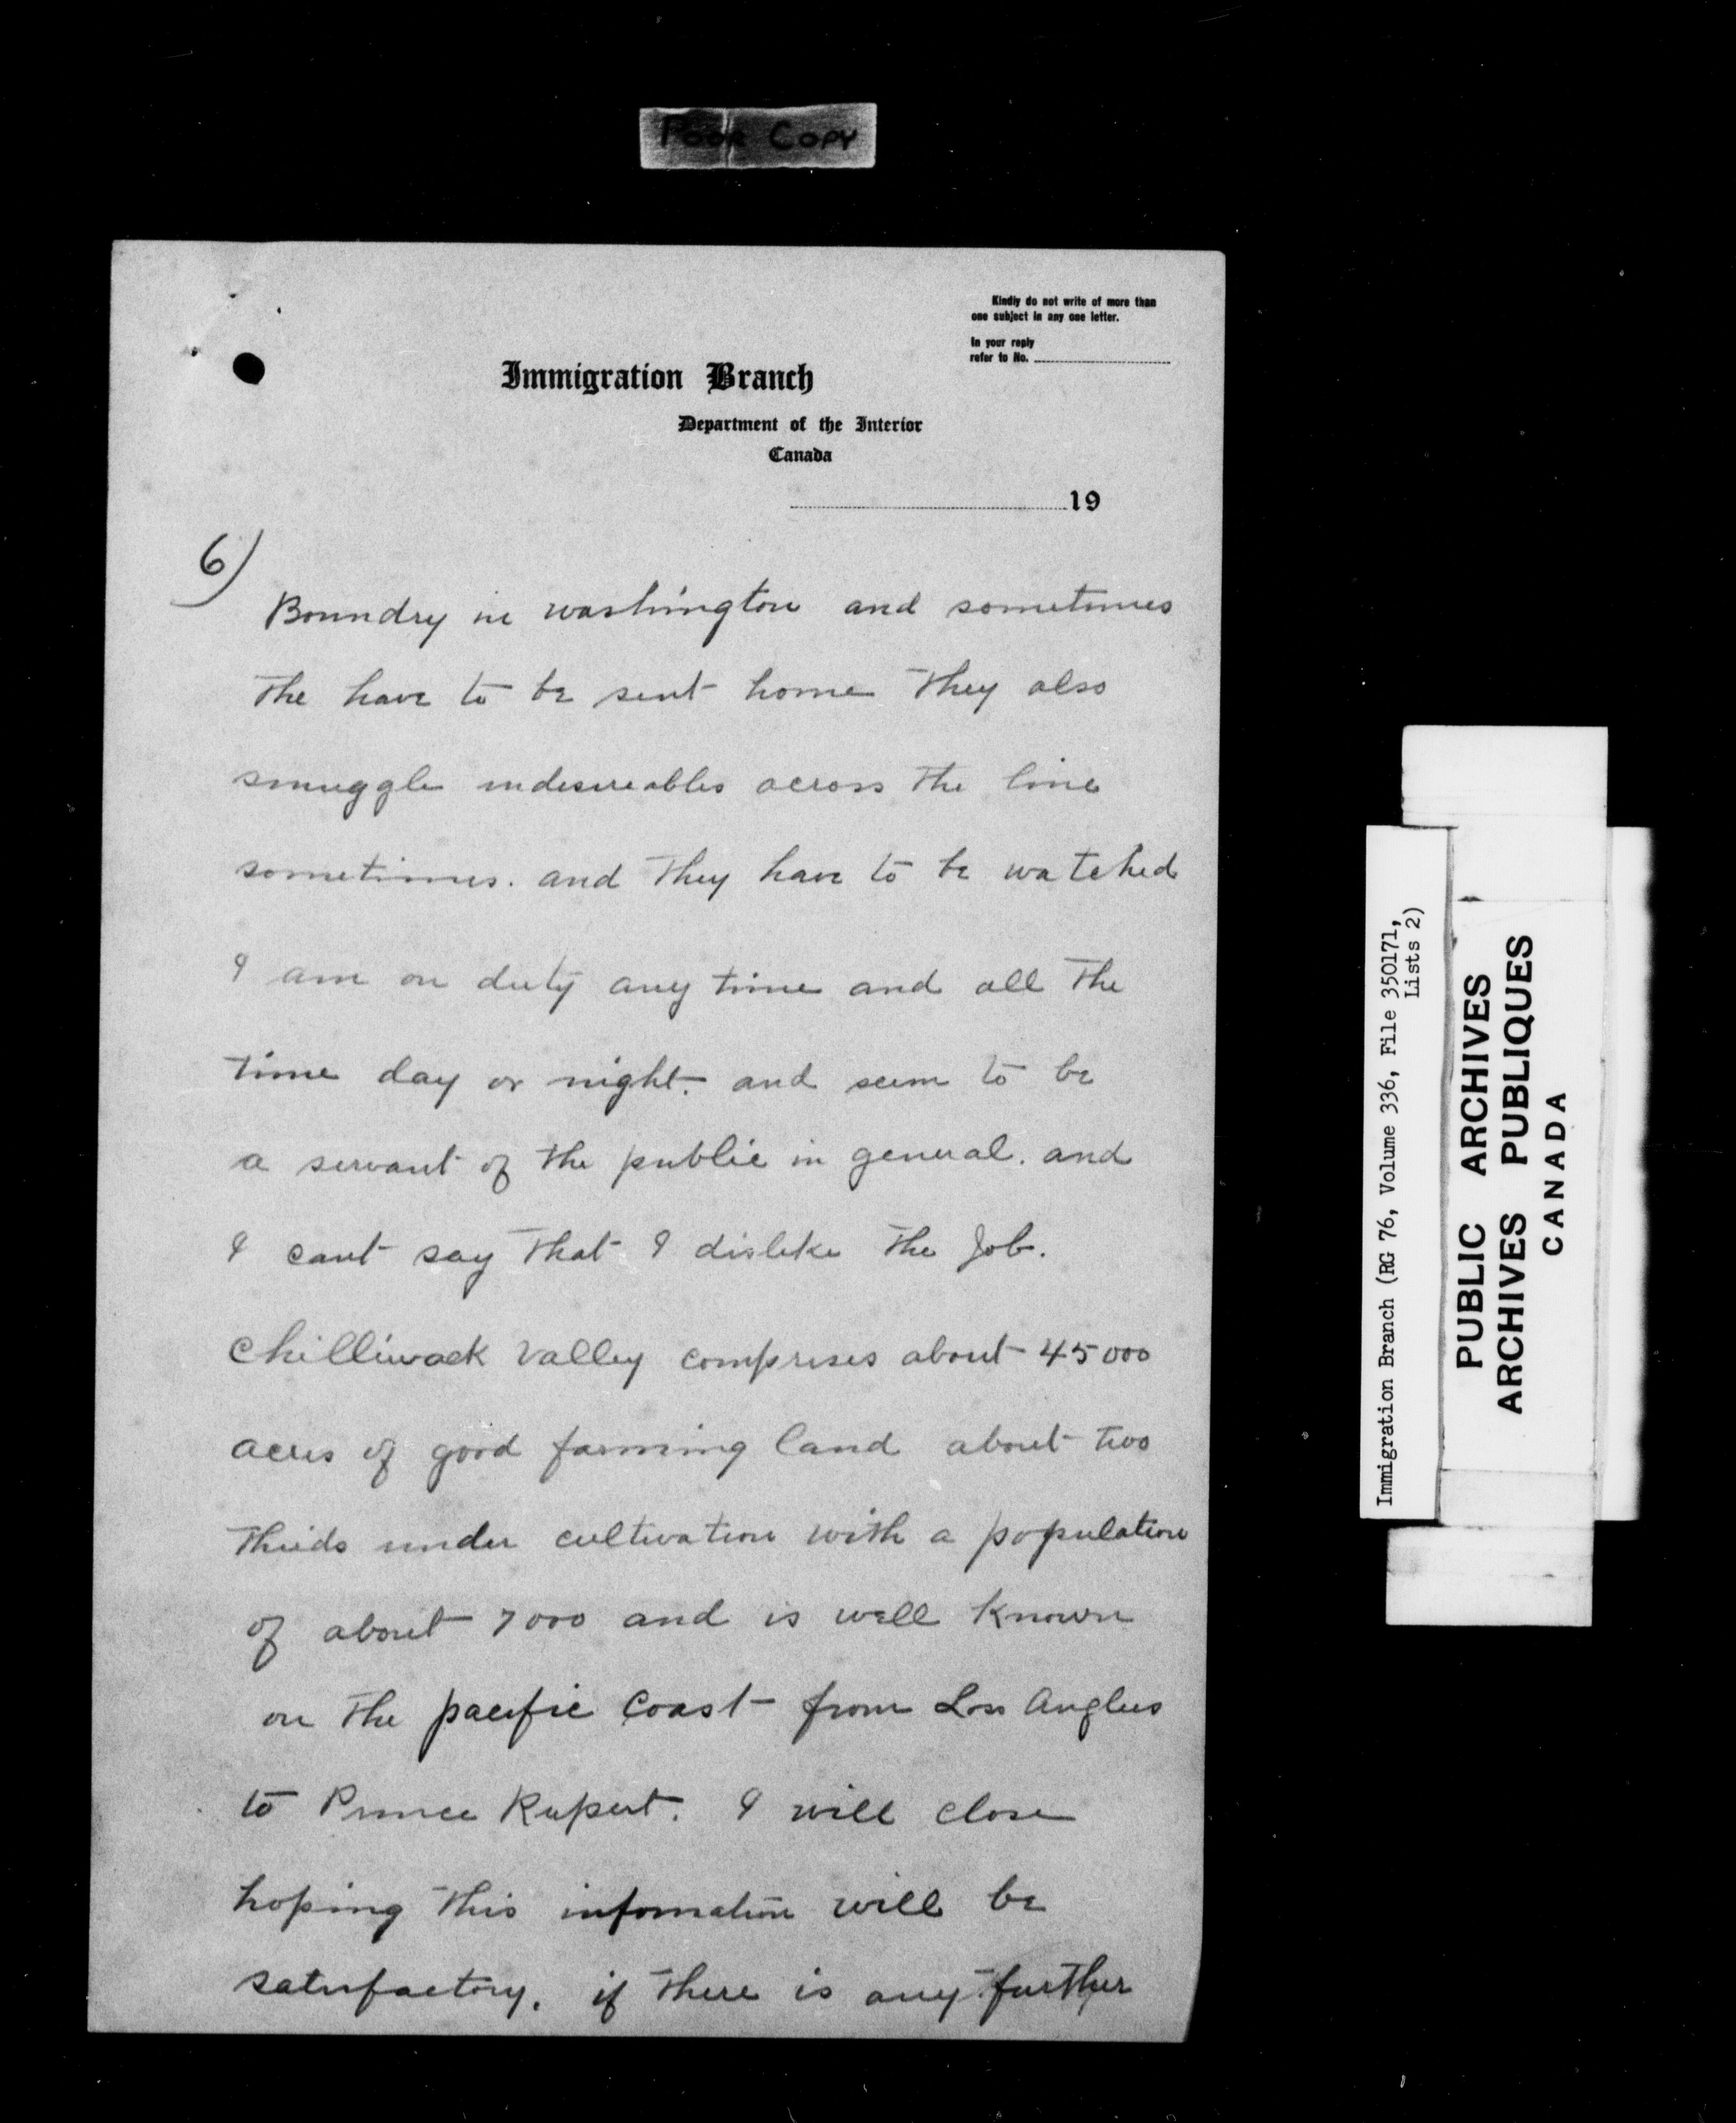 Poor Copy
Kindly do not write of more than
one subject in any one letter.
In your reply
refer to No.
Immigration Branch
Department of the Interior
Canada
19
6)
Boundry in washington and sometimes
the have to be sent home They also
smuggle indesireables across the line
sometimes. and they have to be watched
I am on duty any time and all the
time day or night. and seem to be
a servant of the public in general. and
I cant say that I dislike the Job.
Chilliwack Valley comprises about 45000
acres of good farming land about two
thirds under cultivation with a population
of about 7000 and is well known
on the pacific Coast from Los Angles
to Prince Rupert. I will close
hoping this infomation will be
satisfactory. if there is any further
Immigration Branch (RG 76, Volume 336, File 350171,
Lists 2)
PUBLIC ARCHIVES
ARCHIVES PUBLIQUES
CANADA